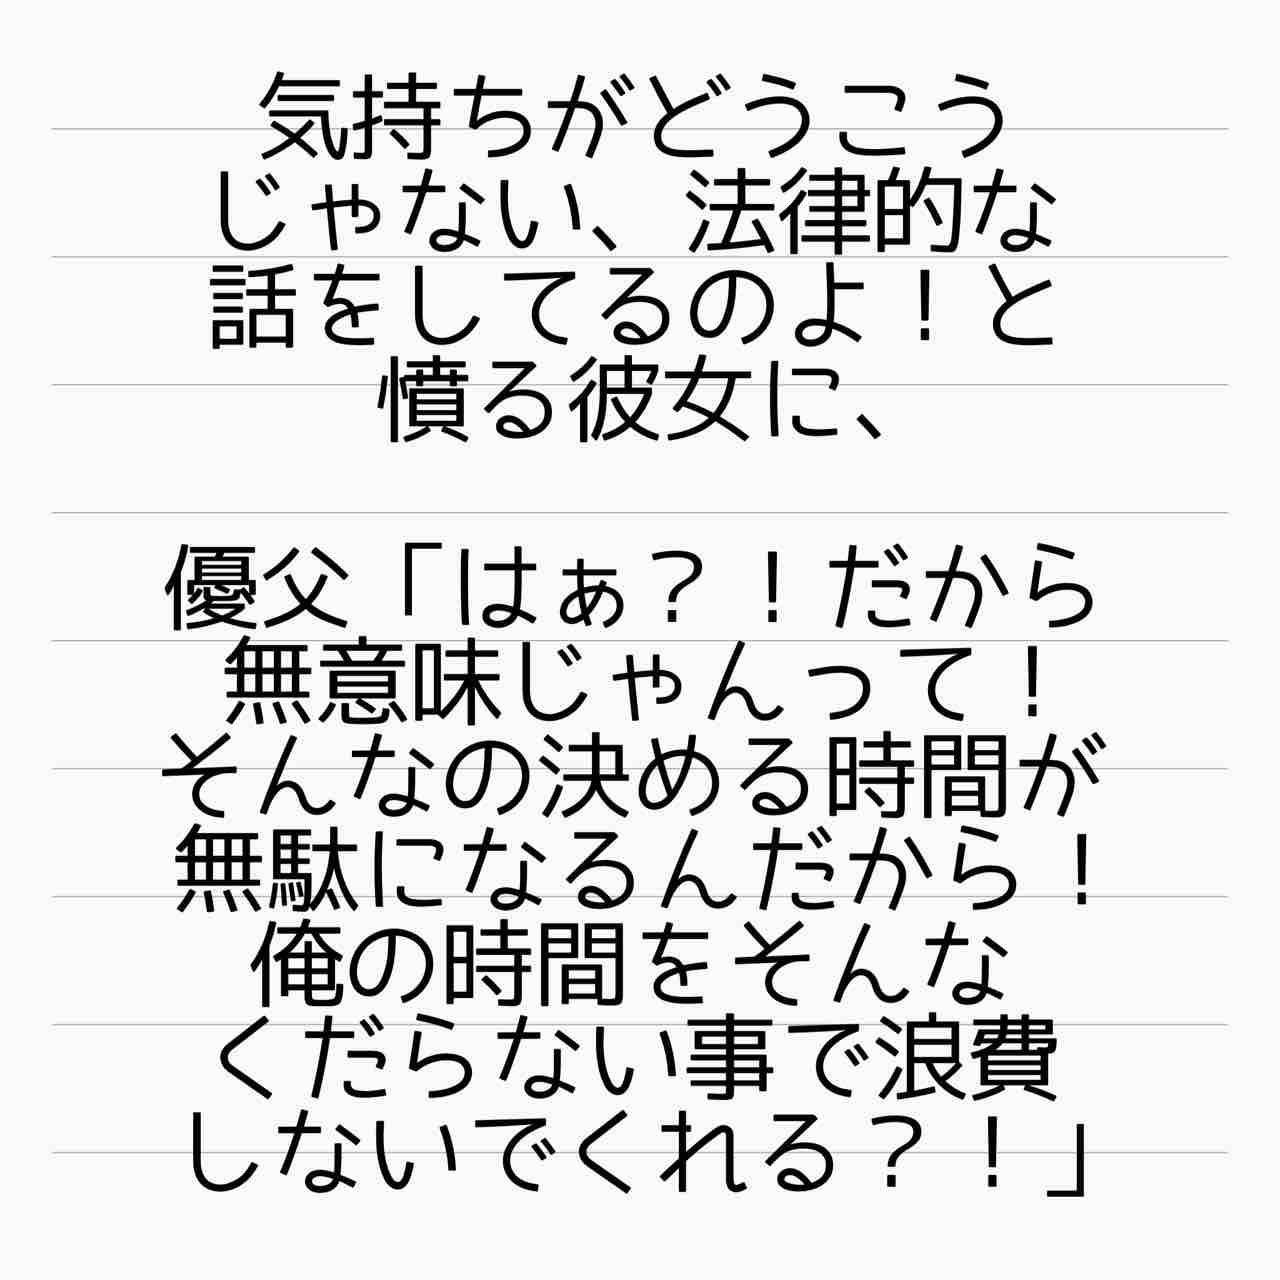 気持ちがどうこう
じゃない、法律的な
話をしてるのよ！と
憤る彼女に、
優父「はぁ？！だから
無意味じゃんって！
そんなの決める時間が
無駄になるんだから！
俺の時間をそんな
くだらない事で浪費
しないでくれる？！」